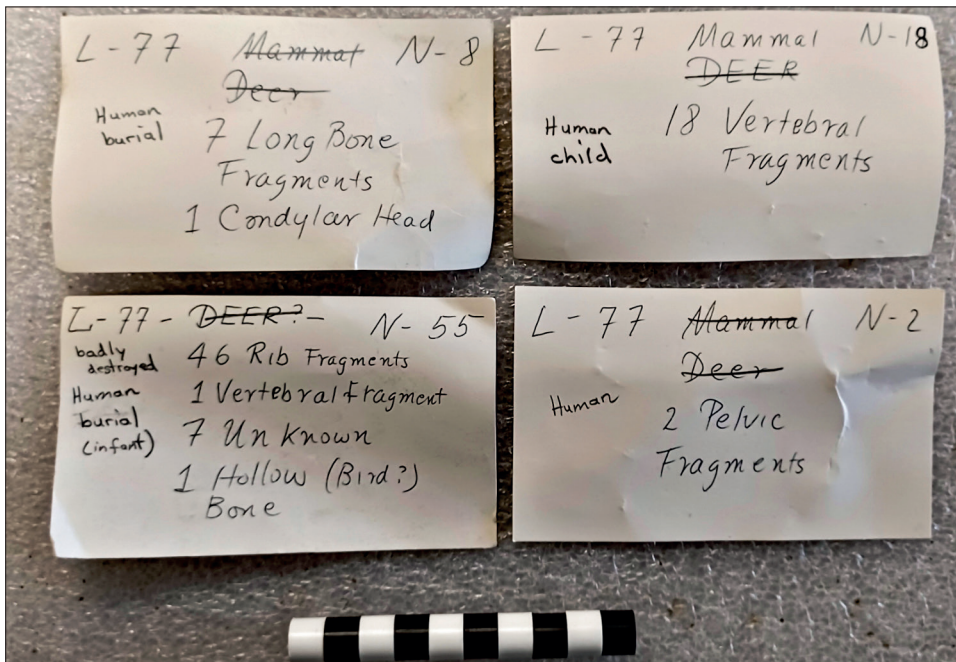 L-77 Mammal N-8
Deer
Human
burial
7 Long Bone
Fragments
1 Condylar Head
L-77 Mammal N-18
DEER
Human
child
18 Vertebral
Fragments
L-77- DEER?- N-55
badly
destroyed
46 Rib Fragments
Human
burial
(infant)
1 Vertebral Fragment
7 Un Known
1 Hollow (Bird?)
Bone
L-77 Mammal N-2
Deer
Human
2 Pelvic
Fragments